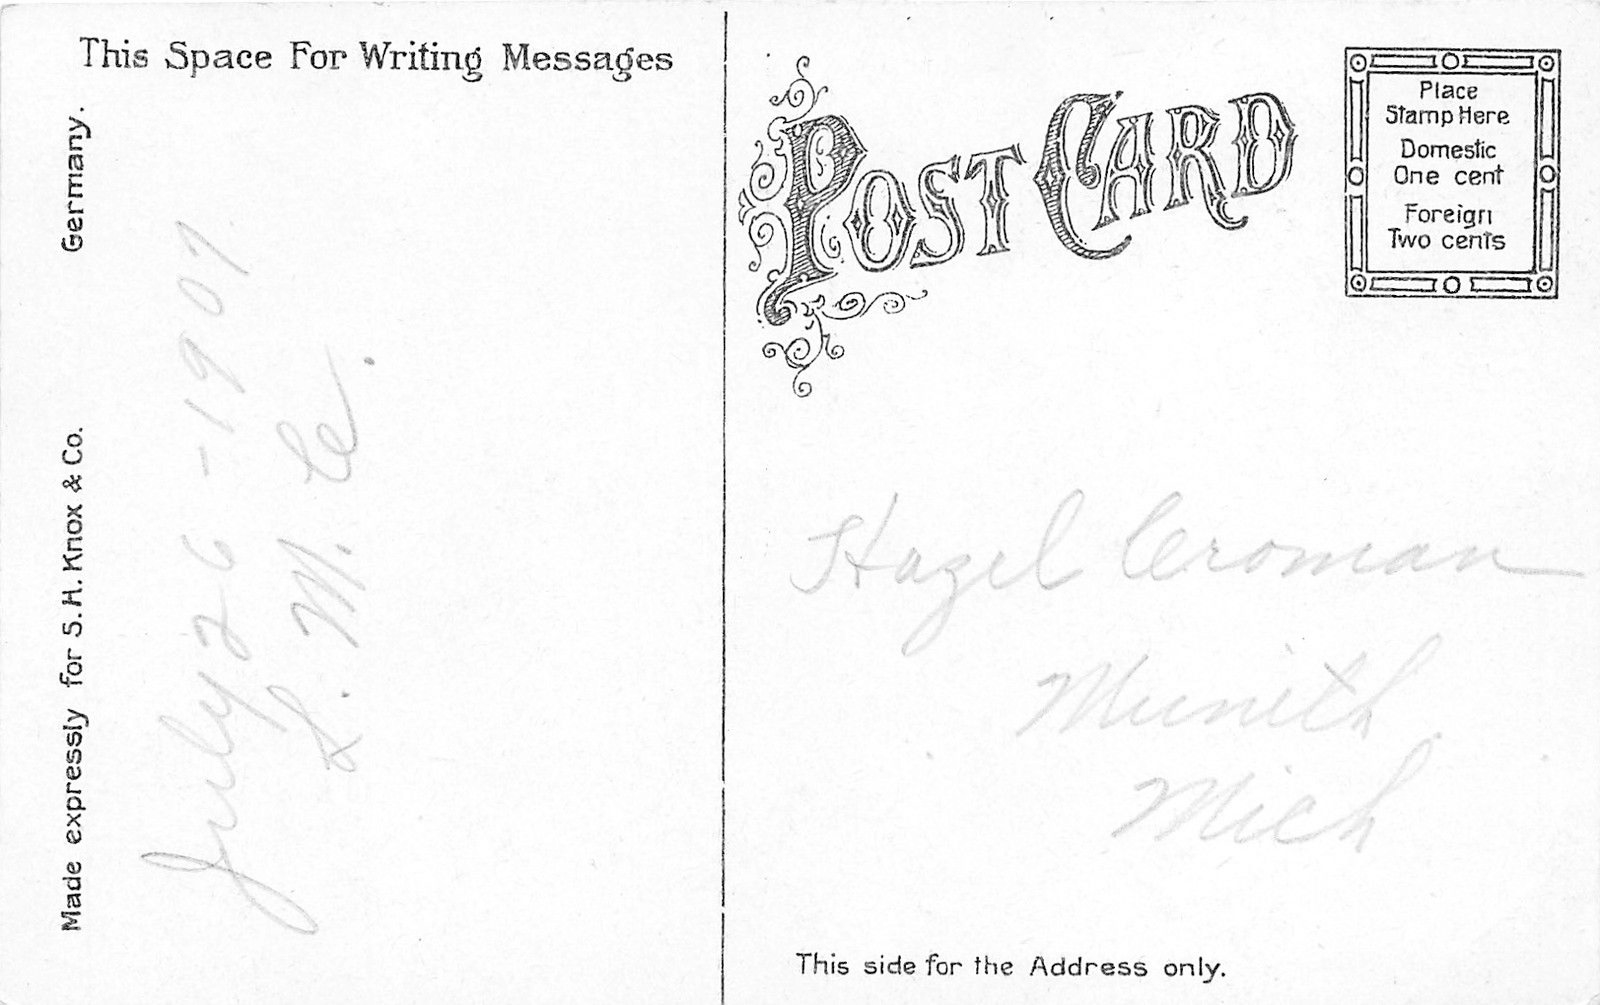 This Space For Writing Messages
Germany.
Made expressly for S. H. Knox & Co.
July 26 - 1907.
L. M. C.
POST CARD
Place
Stamp Here
Domestic
One cent
Foreign
Two cents
Hazel Croman
Munith
Mich
This side for the Address only.